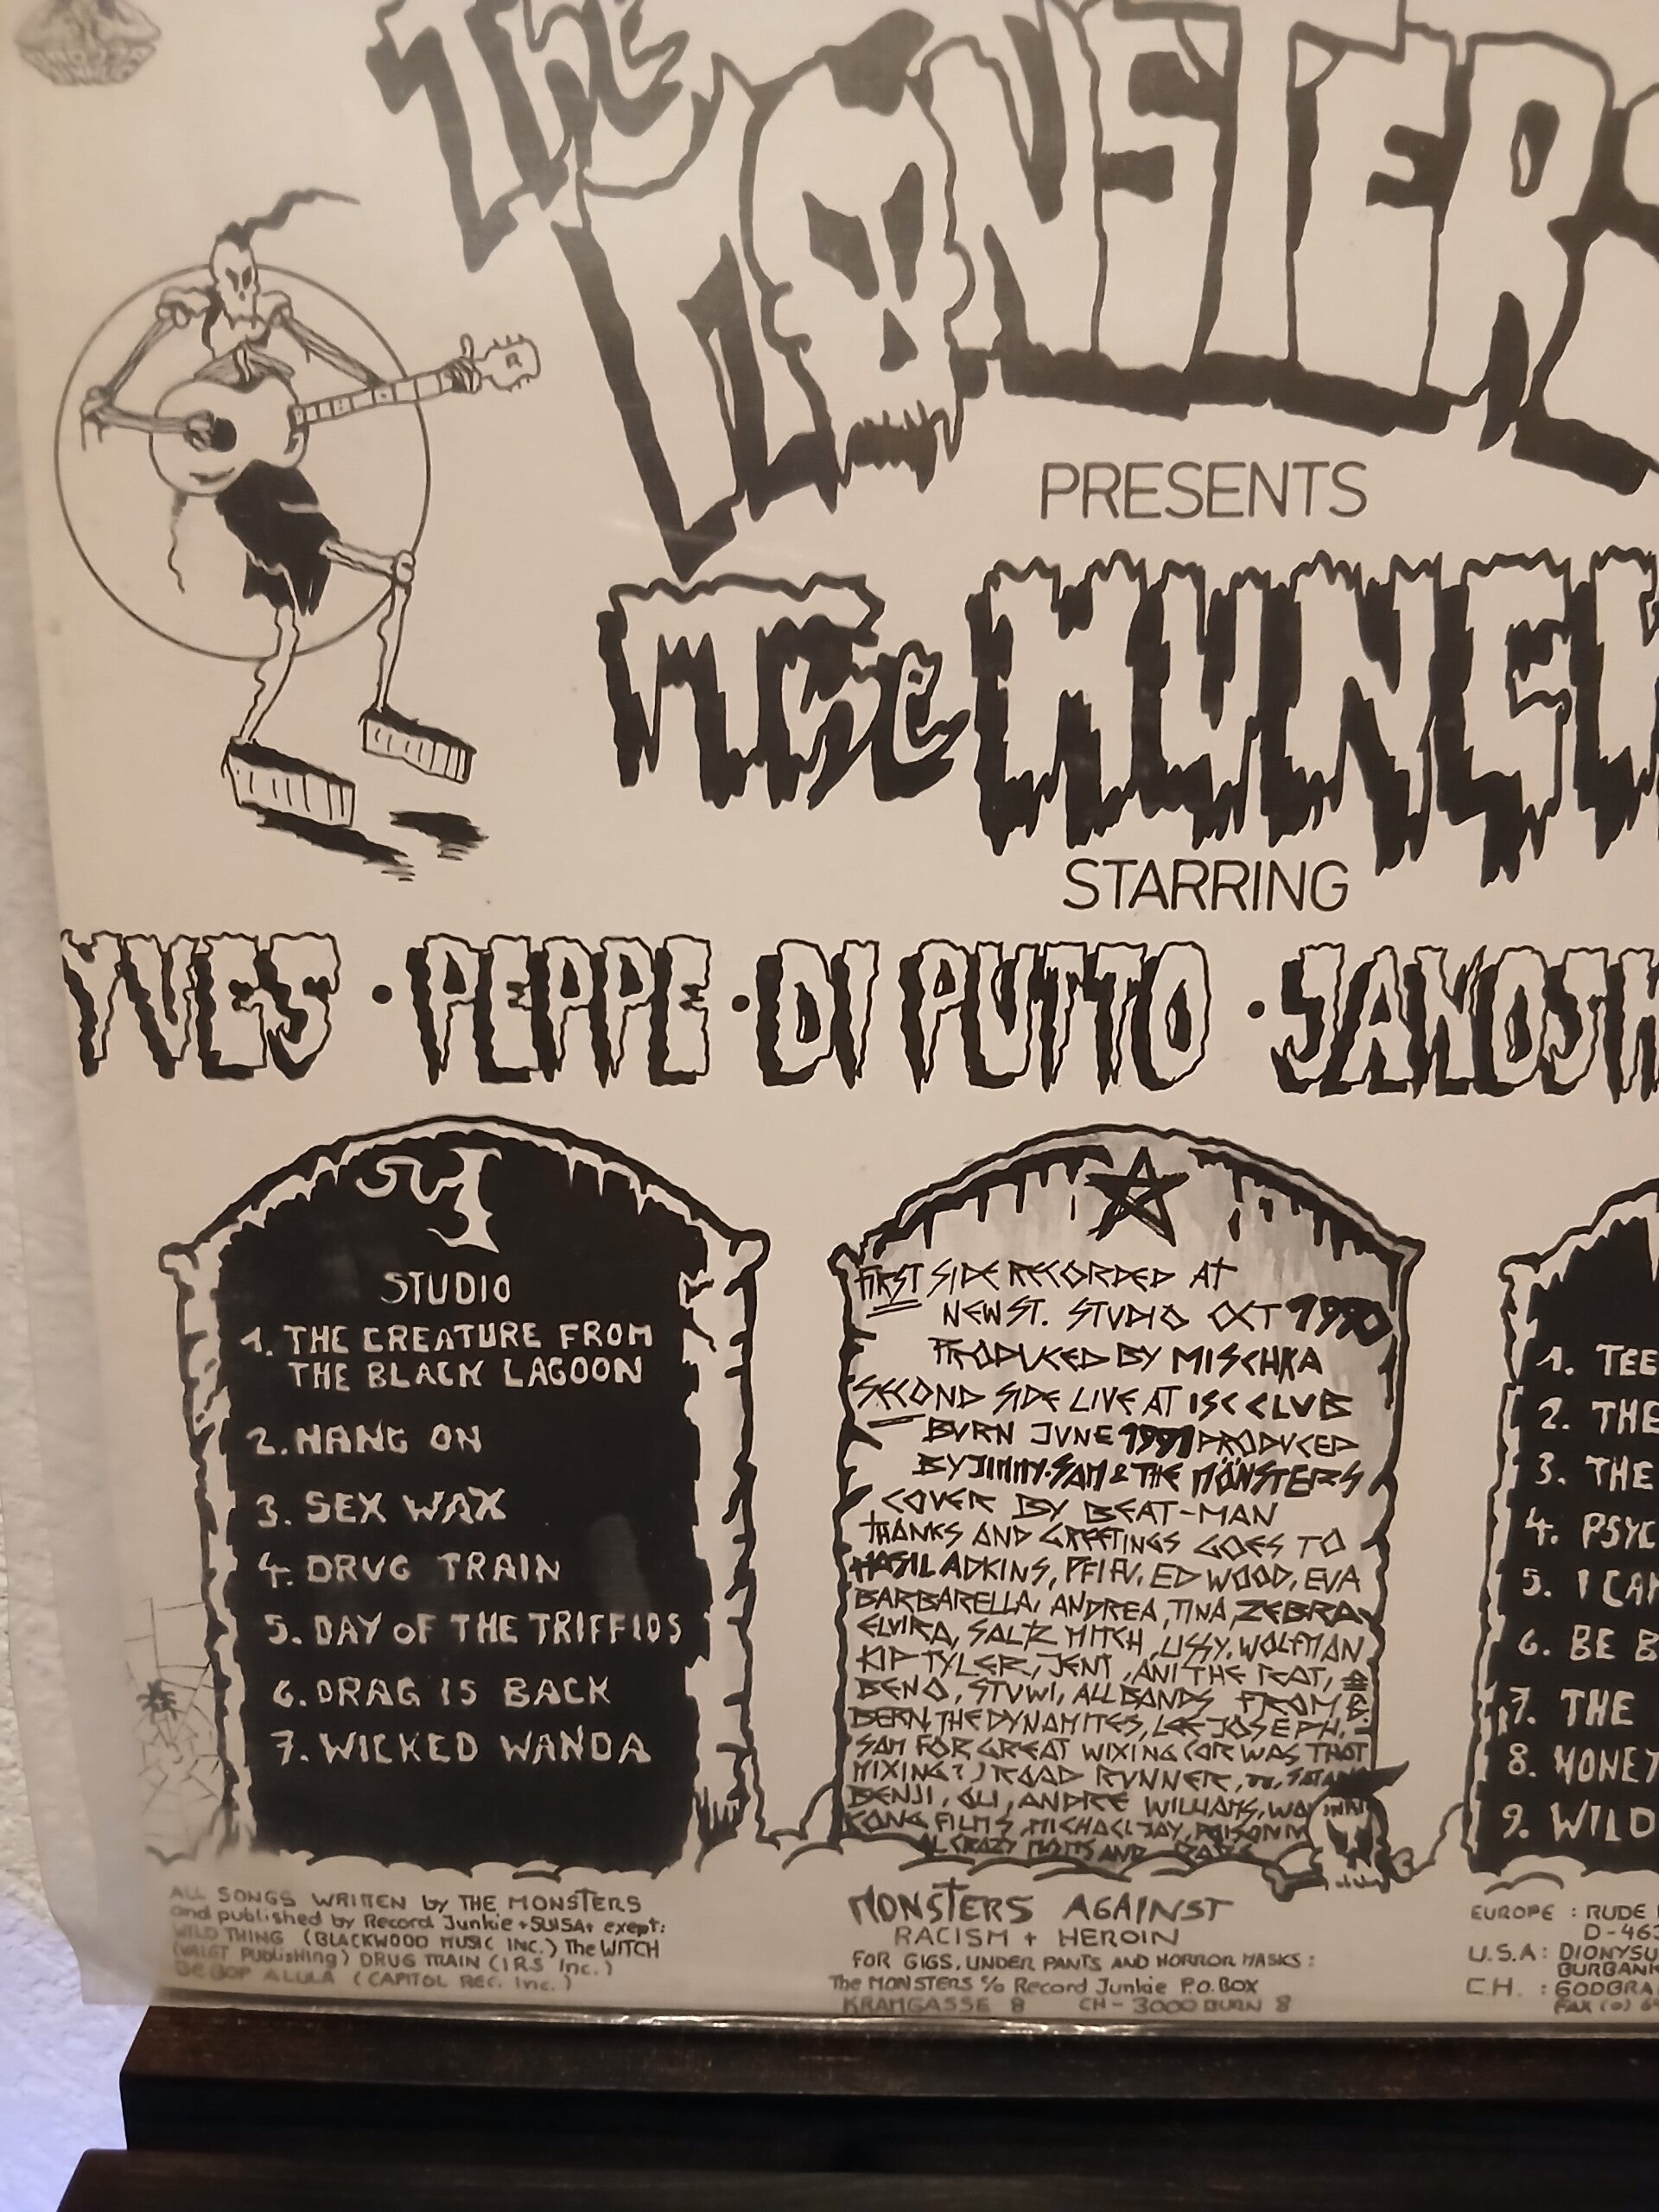 The
MONSTERS
PRESENTS
The HUNCH
STARRING
YVES · PEPPE · DI PUTTO · JANOSH
STUDIO
1. THE CREATURE FROM
THE BLACK LAGOON
2. HANG ON
3. SEX WAX
4. DRUG TRAIN
5. DAY OF THE TRIFFIDS
6. DRAG IS BACK
7. WICKED WANDA
FIRST SIDE RECORDED AT
NEW ST. STUDIO OCT 1990
PRODUCED BY MISCHKA
SECOND SIDE LIVE AT ISC CLUB
BURN JUNE 1991 PRODUCED
BY JIMMY·SAM & THE MÖNSTERS
COVER BY BEAT-MAN
THANKS AND GREETINGS GOES TO
HASIL ADKINS, ED WOOD, EVA
BARBARELLA, ANDREA, TINA, ZEBRA
ELVIRA, SALTZ MITCH, LISSY, WOLFMAN
KIP TYLER, JENI, ANI THE
BENO, STUWI, ALL BANDS FROM
BERN, THE DYNAMITES, LEE JOSEPH,
SAM FOR GREAT WIXING (OR WAS THAT
MIXING?) ROAD RUNNER, SATAN
BENJI, OLI, ANDRE WILLIAMS,
KONG FILMS, MICHAEL JAY,
AL CRAZY MOMS AND DADS
1. TEE
2. THE
3. THE
4. PSYC
5. I CAN
6. BE B
7. THE
8. HONEY
9. WILD
ALL SONGS WRITTEN by THE MONSTERS
and published by Record Junkie + SUISA + exept:
WILD THING (BLACKWOOD MUSIC INC.) The WITCH
(VALET Publishing) DRUG TRAIN (IRS Inc.)
BE BOP A LULA (CAPITOL REC. Inc.)
MONSTERS AGAINST
RACISM + HEROIN
FOR GIGS, UNDER PANTS AND HORROR MASKS:
The MONSTERS c/o Record Junkie P.O. BOX
KRAMGASSE 8 CH-3000 BURN 8
EUROPE : RUDE
D-463
U.S.A : DIONYSU
BURBANK
C.H. : GODBRA
FAX (0) 64